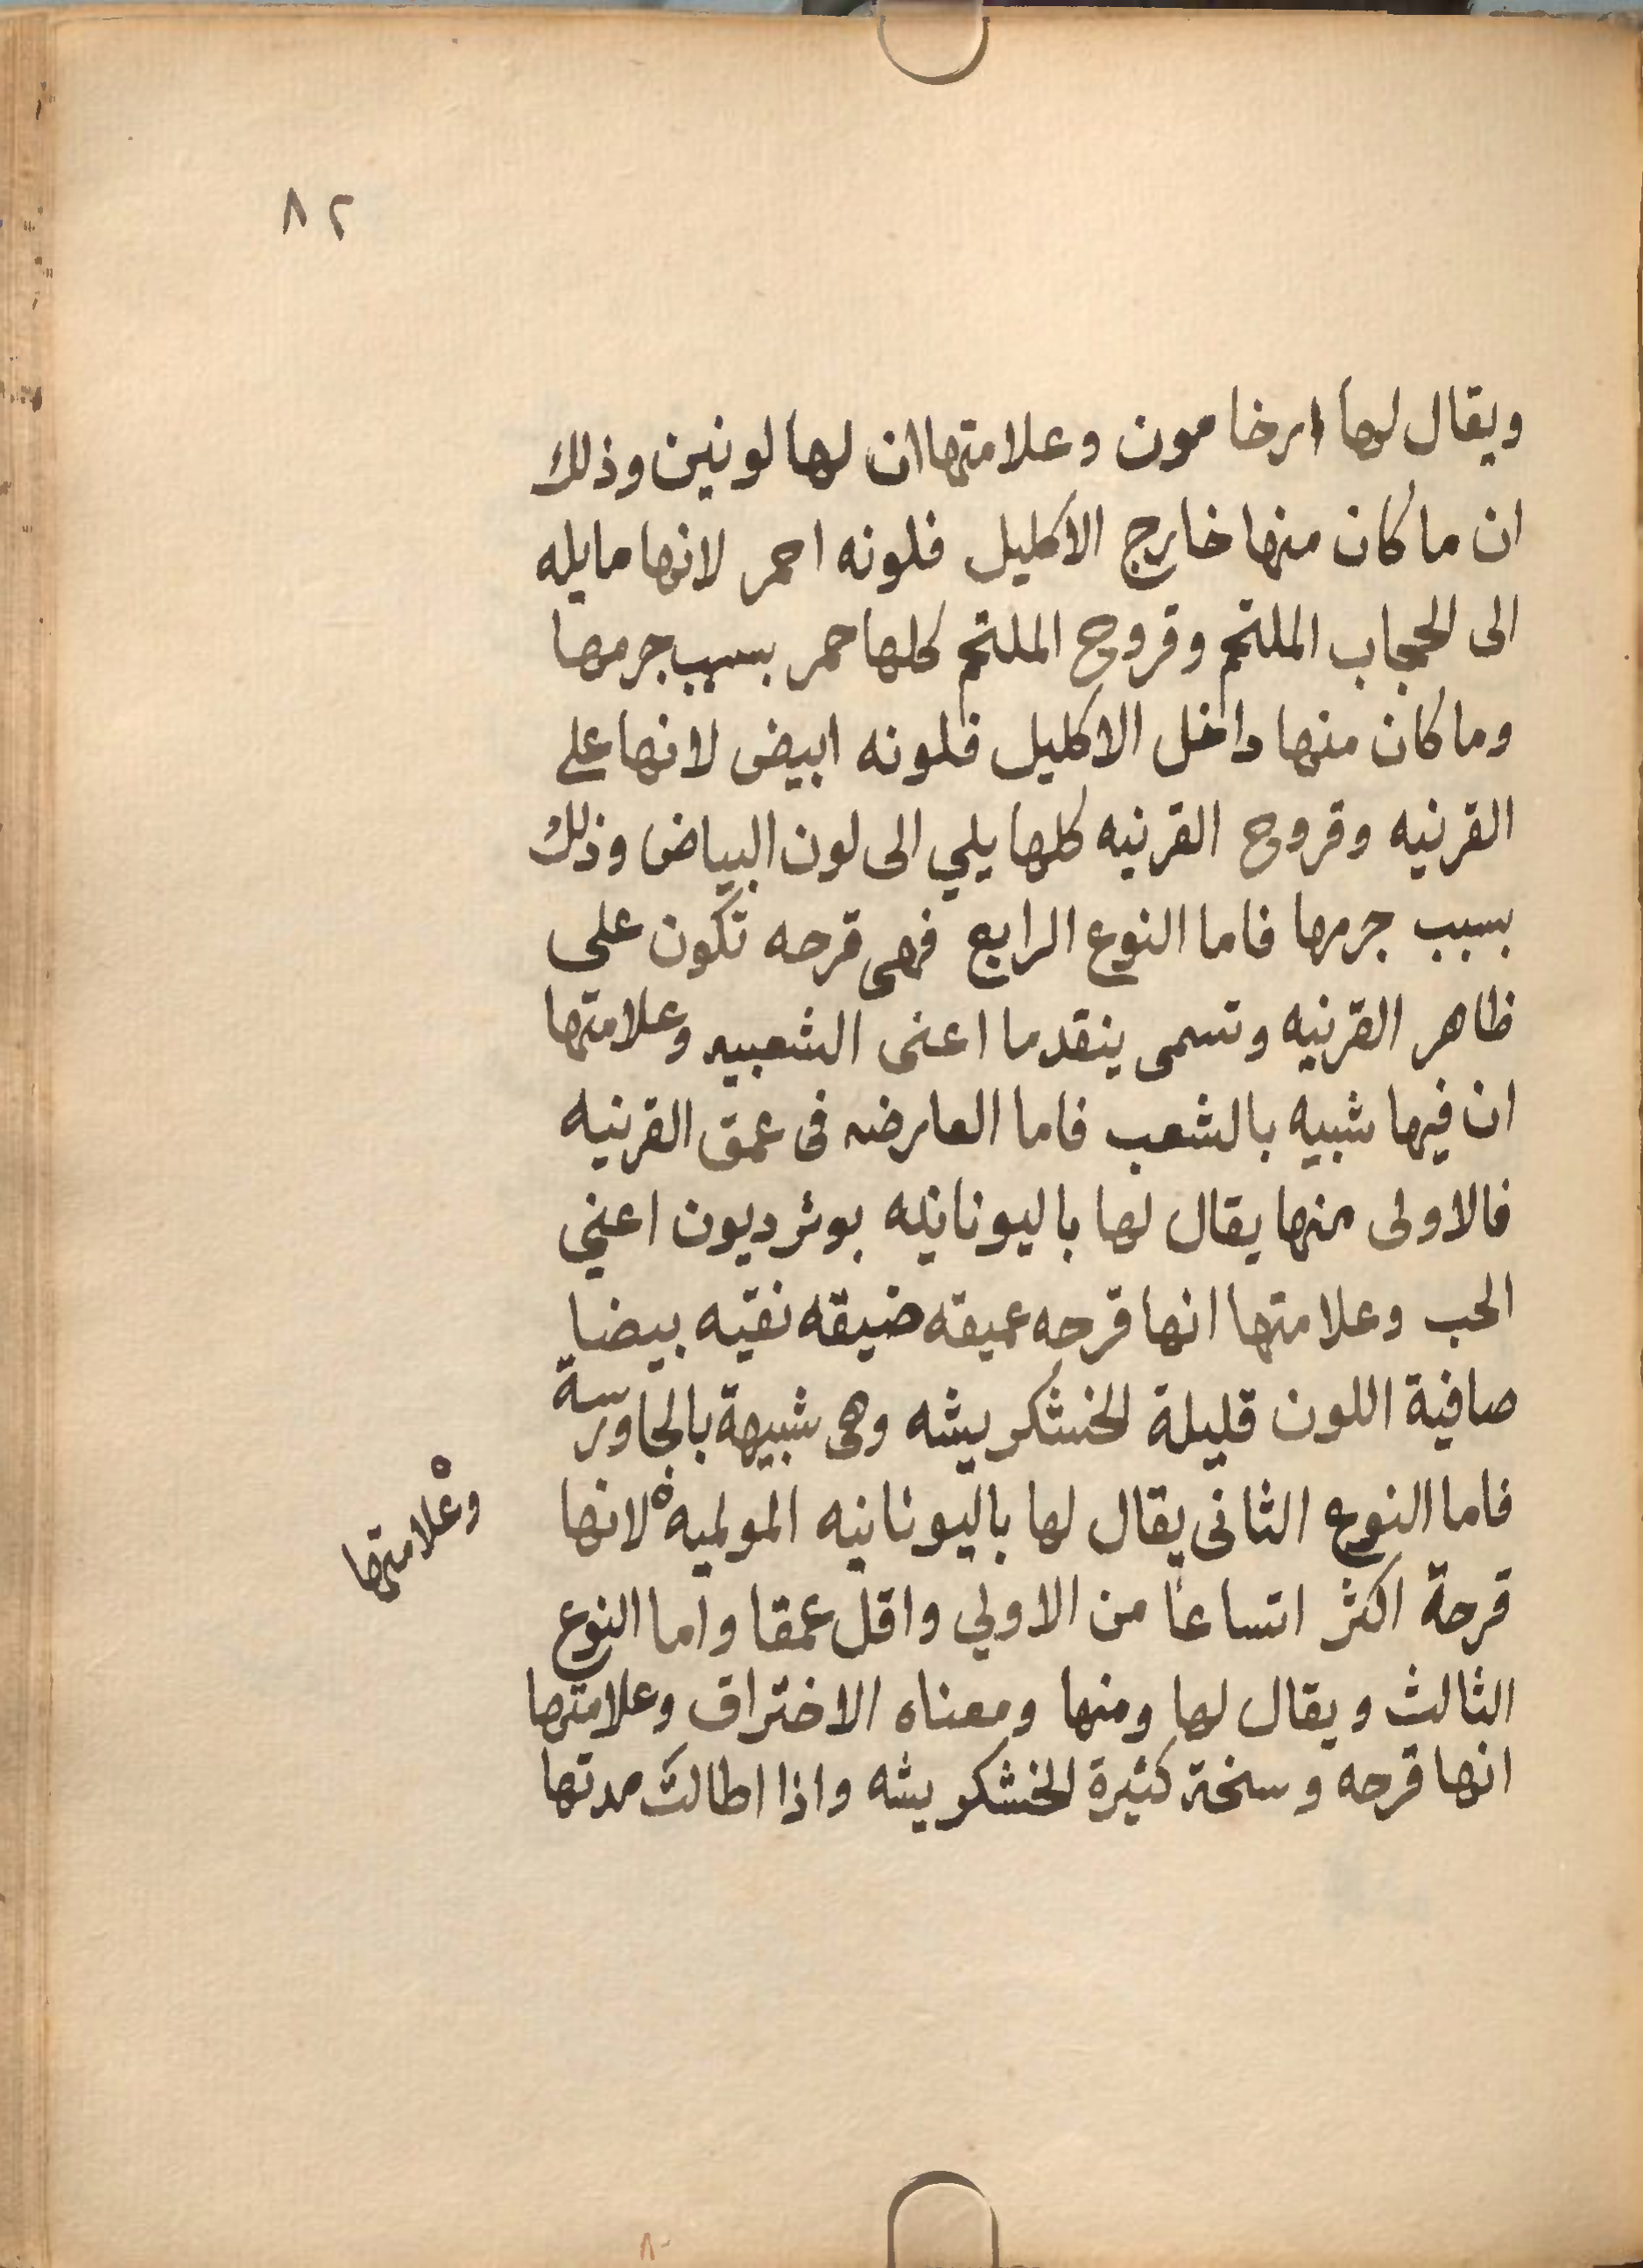 ٨٢
ويقال لها ارخامون وعلامتها ان لها لونين وذلك
ان ما كان منها خارج الاكليل فلونه احمر لانها مايله
الى الحجاب الملتحم وقروح الملتحم كلها حمر بسبب جرمها
وما كان منها داخل الاكليل فلونه ابيض لانها على
القرنيه وقروح القرنيه كلها يلي الى لون البياض وذلك
بسبب جرمها فاما النوع الرابع فهى قرحه تكون على
ظاهر القرنيه وتسمى ينقدما اعنى الشعبيه وعلامتها
ان فيها شبيه بالشعب فاما العارضه فى عمق القرنيه
فالاولى منها يقال لها باليونانيه بوثرديون اعني
الحب وعلامتها انها قرحه عميقه ضيقه نقيه بيضا
صافية اللون قليلة الخشكريشه وهى شبيهة بالجاورسة
فاما النوع الثانى يقال لها باليونانيه المولميه لانها
وعلامتها
قرحة اكثر اتساعا من الاولي واقل عمقا واما النوع
الثالث ويقال لها ومنها ومعناه الاختراق وعلامتها
انها قرحه وسخة كثيرة الخشكريشه واذا اطالت مدتها
٨٠